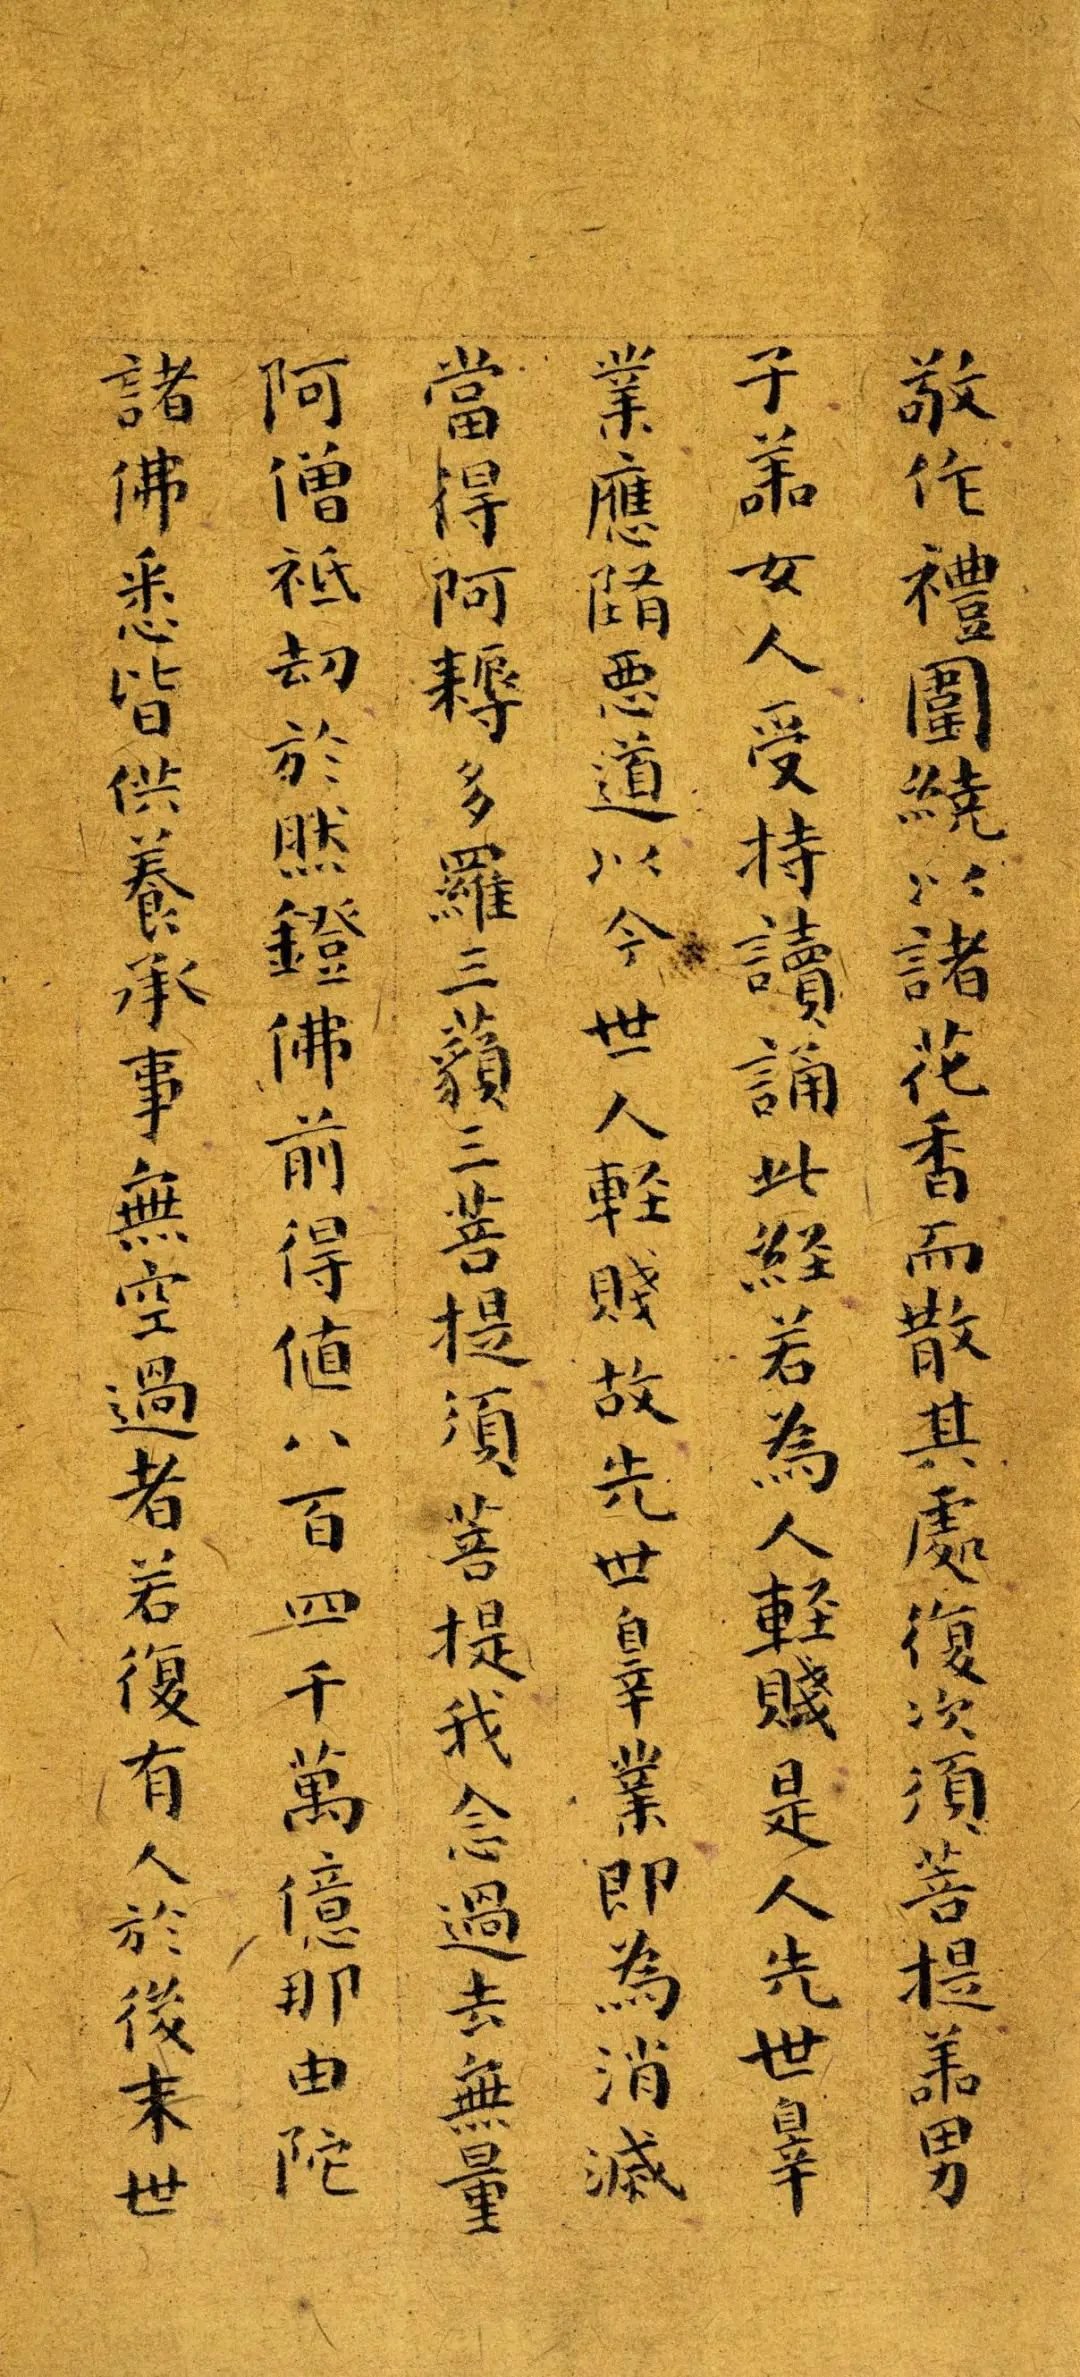 敬作禮圍繞以諸花香而散其處復次須菩提善男
子善女人受持讀誦此經若為人輕賤是人先世辠
業應墮惡道以今世人輕賤故先世辠業即為消滅
當得阿耨多羅三藐三菩提須菩提我念過去無量
阿僧祇劫於然鐙佛前得值八百四千萬億那由陀
諸佛悉皆供養承事無空過者若復有人於後末世